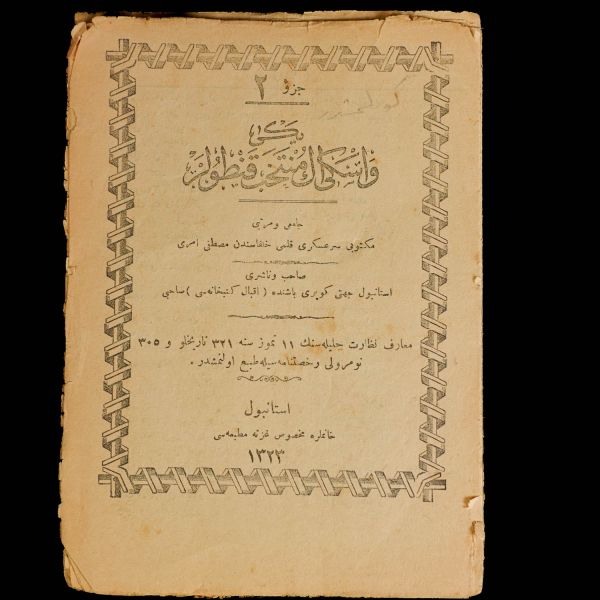 جزو ٢
يكى
واسكى ال منتخب قنطولر
جامعى و مرتبى
مكتوبى سرعسكرى قلمى خلفاسندن مصطفى امرى
صاحب و ناشرى
استانبول جهتى كوپرى باشنده ( اقبال كتبخانه‌سى ) صاحبى
معارف نظارت جليله‌سنك ١١ تموز سنه ٣٢١ تاريخلو و ٣٠٥
نومرولى رخصتنامه‌سيله طبع اولنمشدر .
استانبول
خانملره مخصوص غزته مطبعه‌سى
١٣٢٣